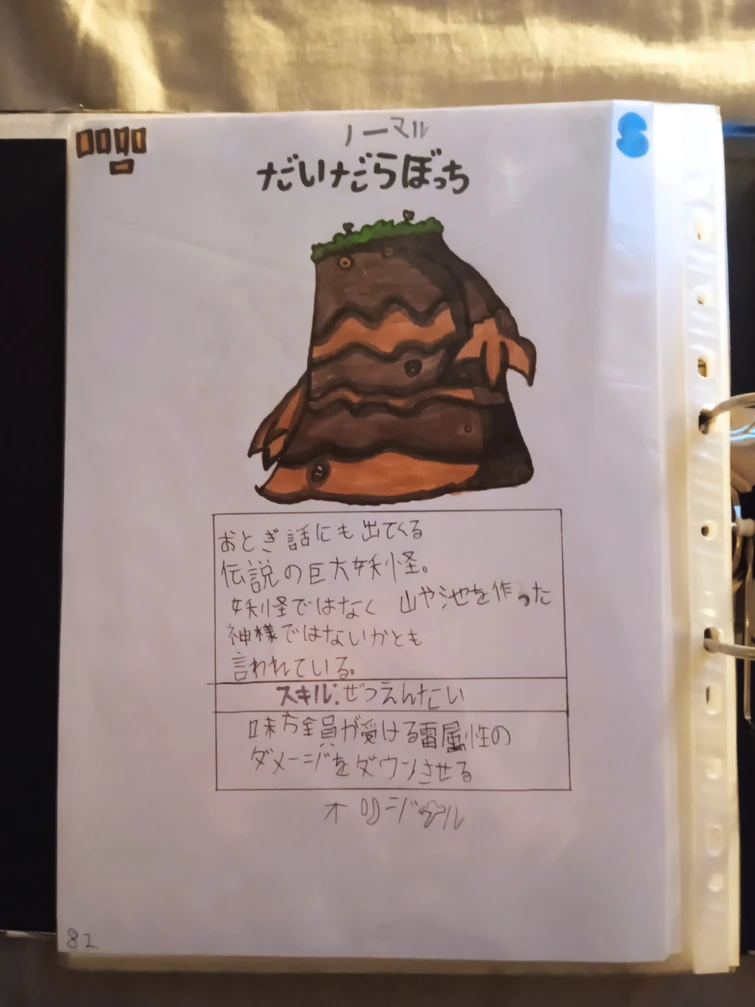 ノーマル
S
だいだらぼっち
おとぎ話にも出てくる
伝説の巨大妖怪。
妖怪ではなく 山や池を作った
神様ではないかとも
言われている。
スキル:ぜつえんたい
味方全員が受ける雷属性の
ダメージをダウンさせる
オリジナル
82